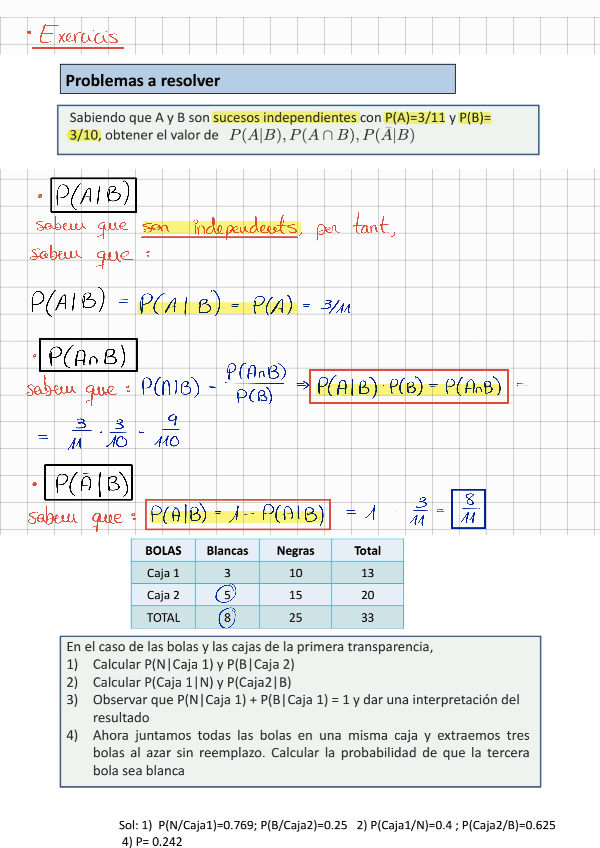 • Exercicis
Problemas a resolver
Sabiendo que A y B son sucesos independientes con P(A)=3/11 y P(B)=
3/10, obtener el valor de P(A|B), P(A ∩ B), P(Ā|B)
• P(A|B)
sabem que son independents, per tant,
sabem que :
P(A|B) = P(A|B) = P(A) = 3/11
• P(A∩B)
sabem que : P(A|B) = P(A∩B)/P(B) ⇒ P(A|B) · P(B) = P(A∩B) =
= 3/11 · 3/10 = 9/110
• P(Ā|B)
sabem que : P(Ā|B) = 1 - P(A|B) = 1 - 3/11 = 8/11
BOLAS Blancas Negras Total
Caja 1 3 10 13
Caja 2 5 15 20
TOTAL 8 25 33
En el caso de las bolas y las cajas de la primera transparencia,
1) Calcular P(N|Caja 1) y P(B|Caja 2)
2) Calcular P(Caja 1|N) y P(Caja2|B)
3) Observar que P(N|Caja 1) + P(B|Caja 1) = 1 y dar una interpretación del
resultado
4) Ahora juntamos todas las bolas en una misma caja y extraemos tres
bolas al azar sin reemplazo. Calcular la probabilidad de que la tercera
bola sea blanca
Sol: 1) P(N/Caja1)=0.769; P(B/Caja2)=0.25 2) P(Caja1/N)=0.4 ; P(Caja2/B)=0.625
4) P= 0.242